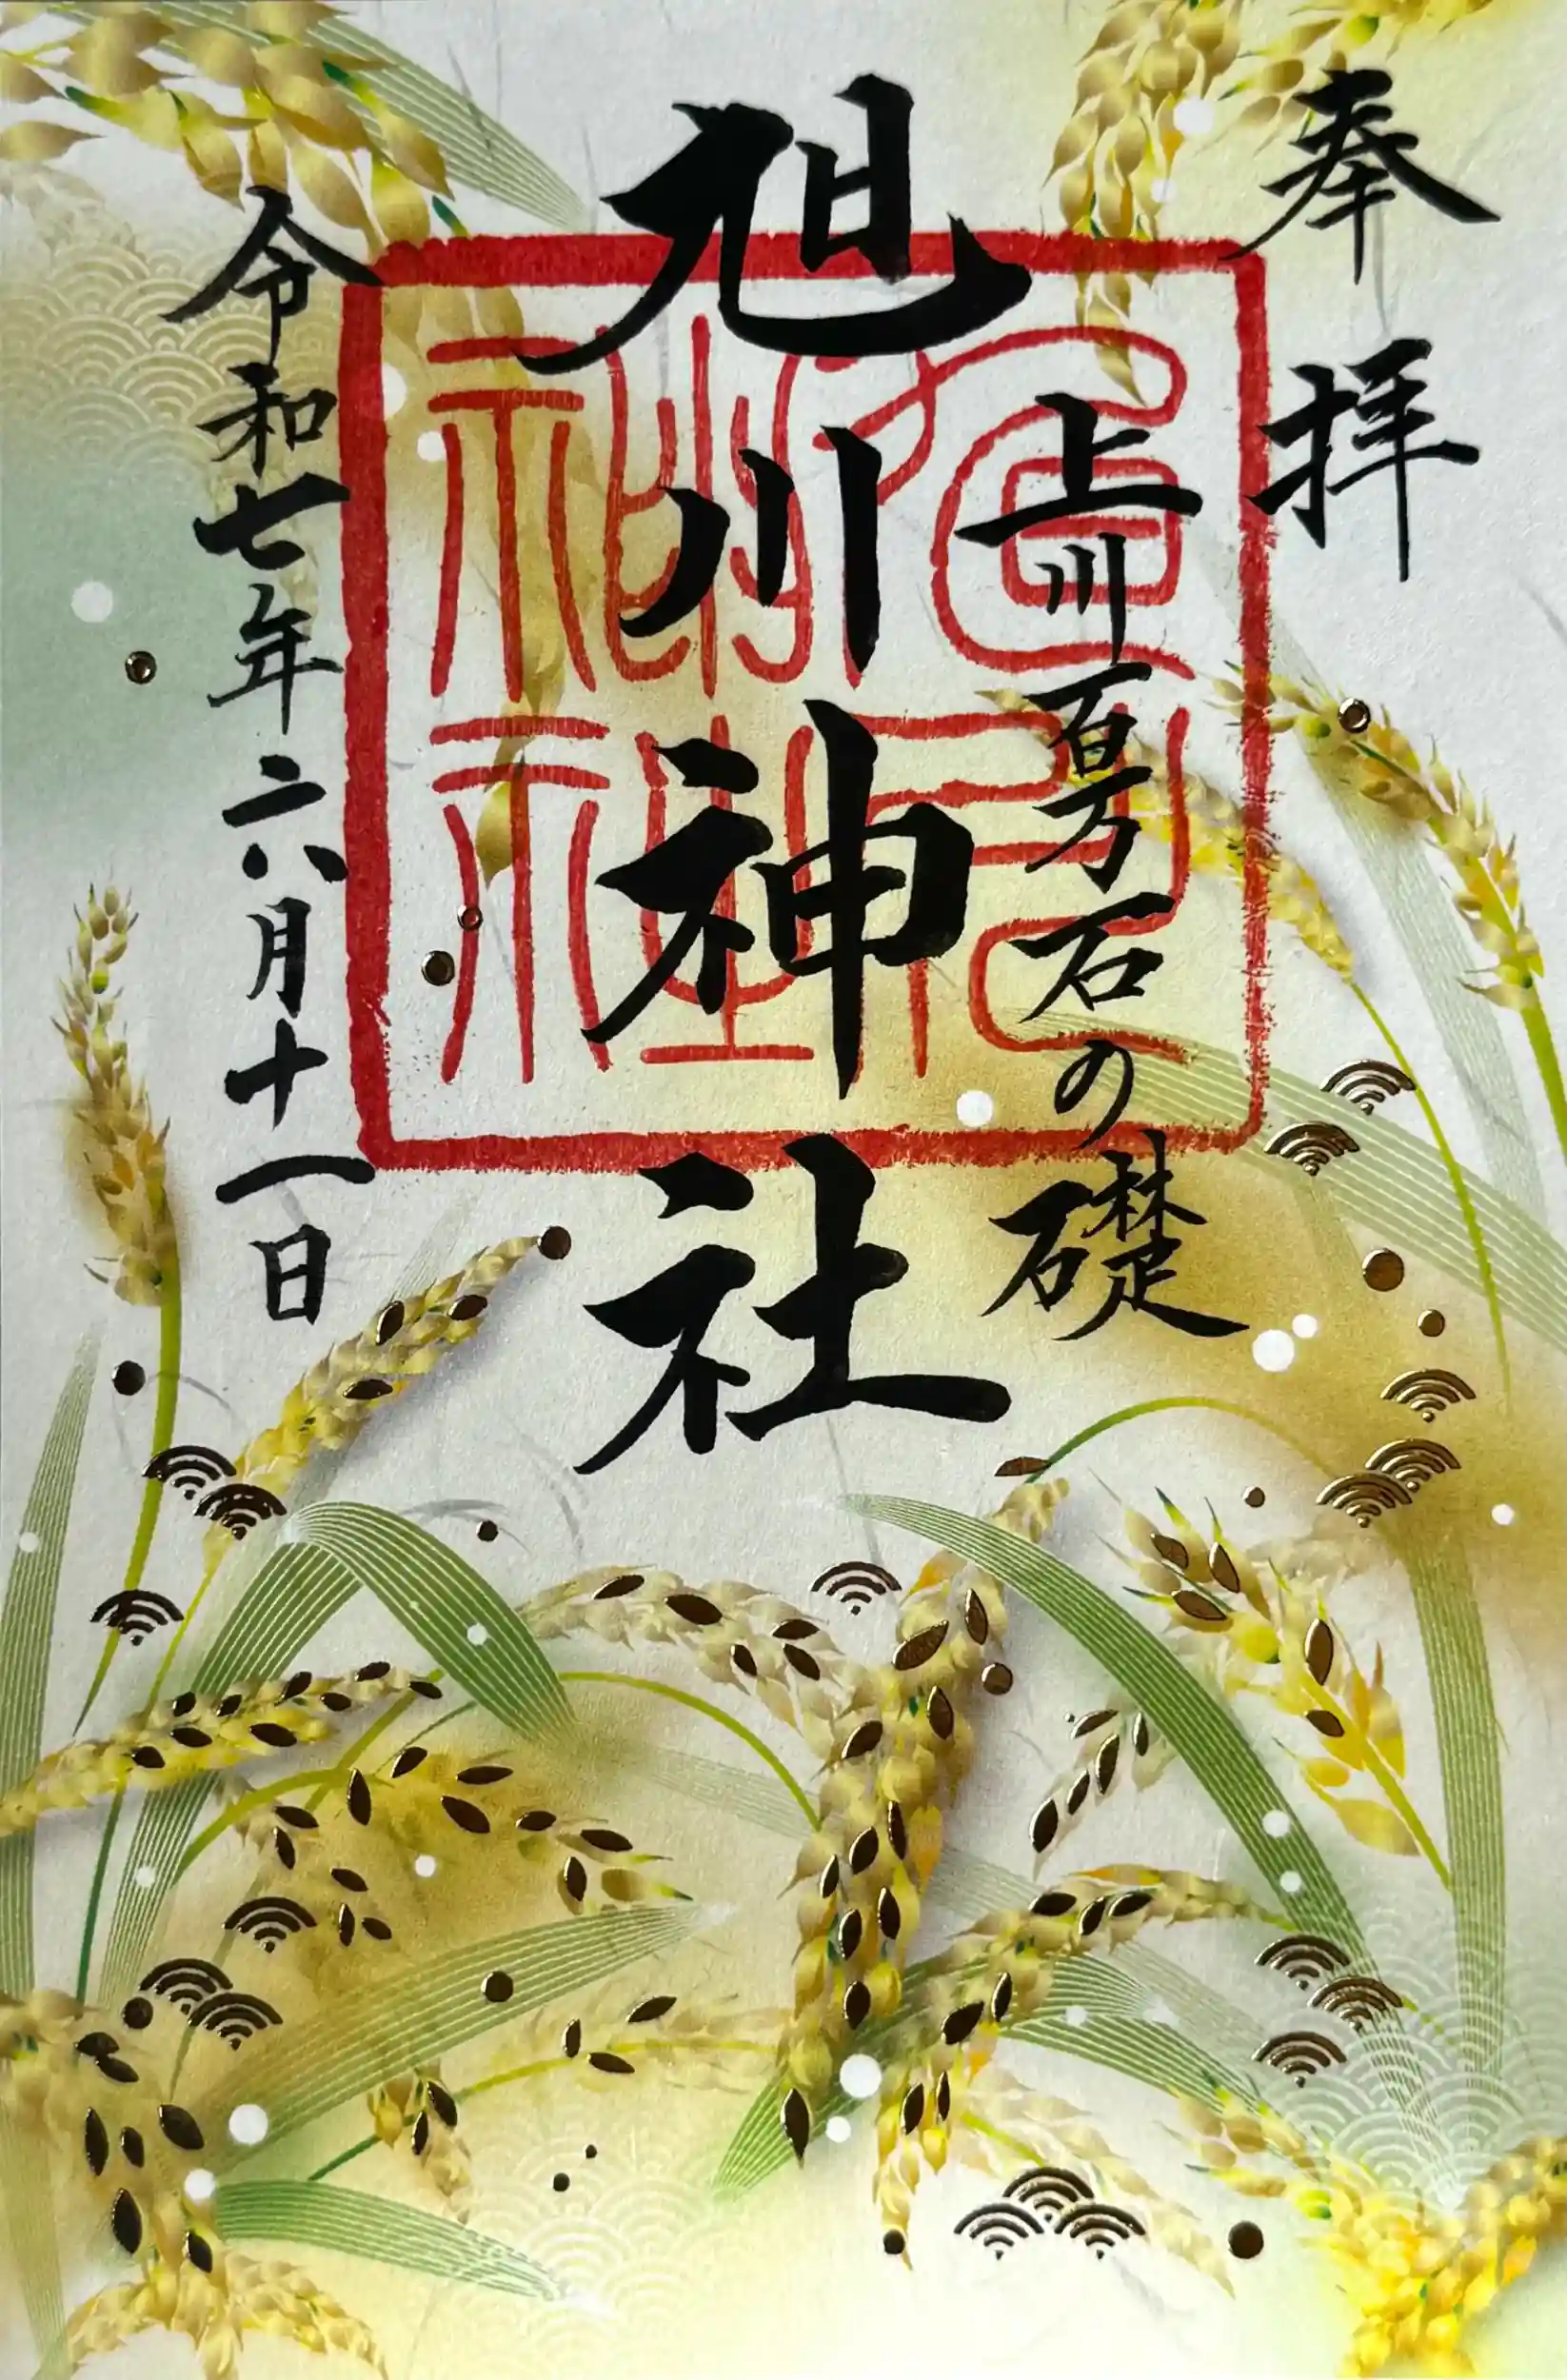 奉拝
上川百万石の礎
旭川神社
令和七年六月十一日